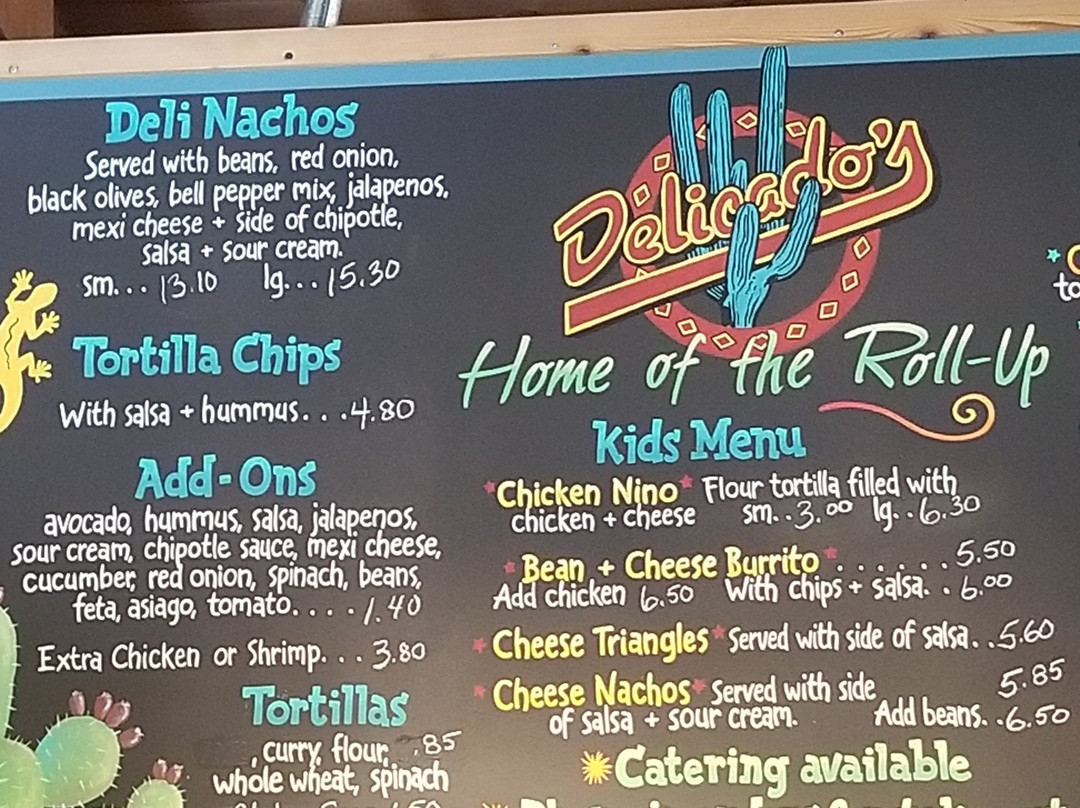 Deli Nachos
Served with beans, red onion,
black olives, bell pepper mix, jalapenos,
mexi cheese + side of chipotle,
salsa + sour cream.
sm... 13.10 lg... 15.30
Tortilla Chips
With salsa + hummus. . .4.80
Add-Ons
avocado, hummus, salsa, jalapenos,
sour cream, chipotle sauce, mexi cheese,
cucumber, red onion, spinach, beans,
feta, asiago, tomato. . . . 1.40
Extra Chicken or Shrimp. . . 3.80
Tortillas
, curry, flour, .85
whole wheat, spinach
Delicado's
Home of the Roll-Up
Kids Menu
*Chicken Nino* Flour tortilla filled with
chicken + cheese sm. .3.00 lg. .6.30
*Bean + Cheese Burrito* . . . . . . .5.50
Add chicken 6.50 With chips + salsa. . 6.00
*Cheese Triangles* Served with side of salsa. .5.60
*Cheese Nachos* Served with side 5.85
of salsa + sour cream. Add beans. .6.50
Catering available
to